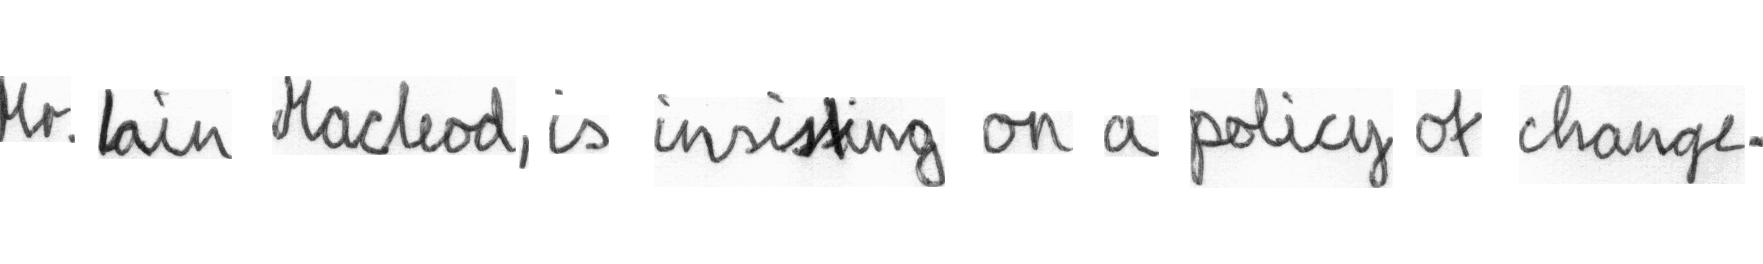 Mr. Iain Macleod, is insisting on a policy of change.